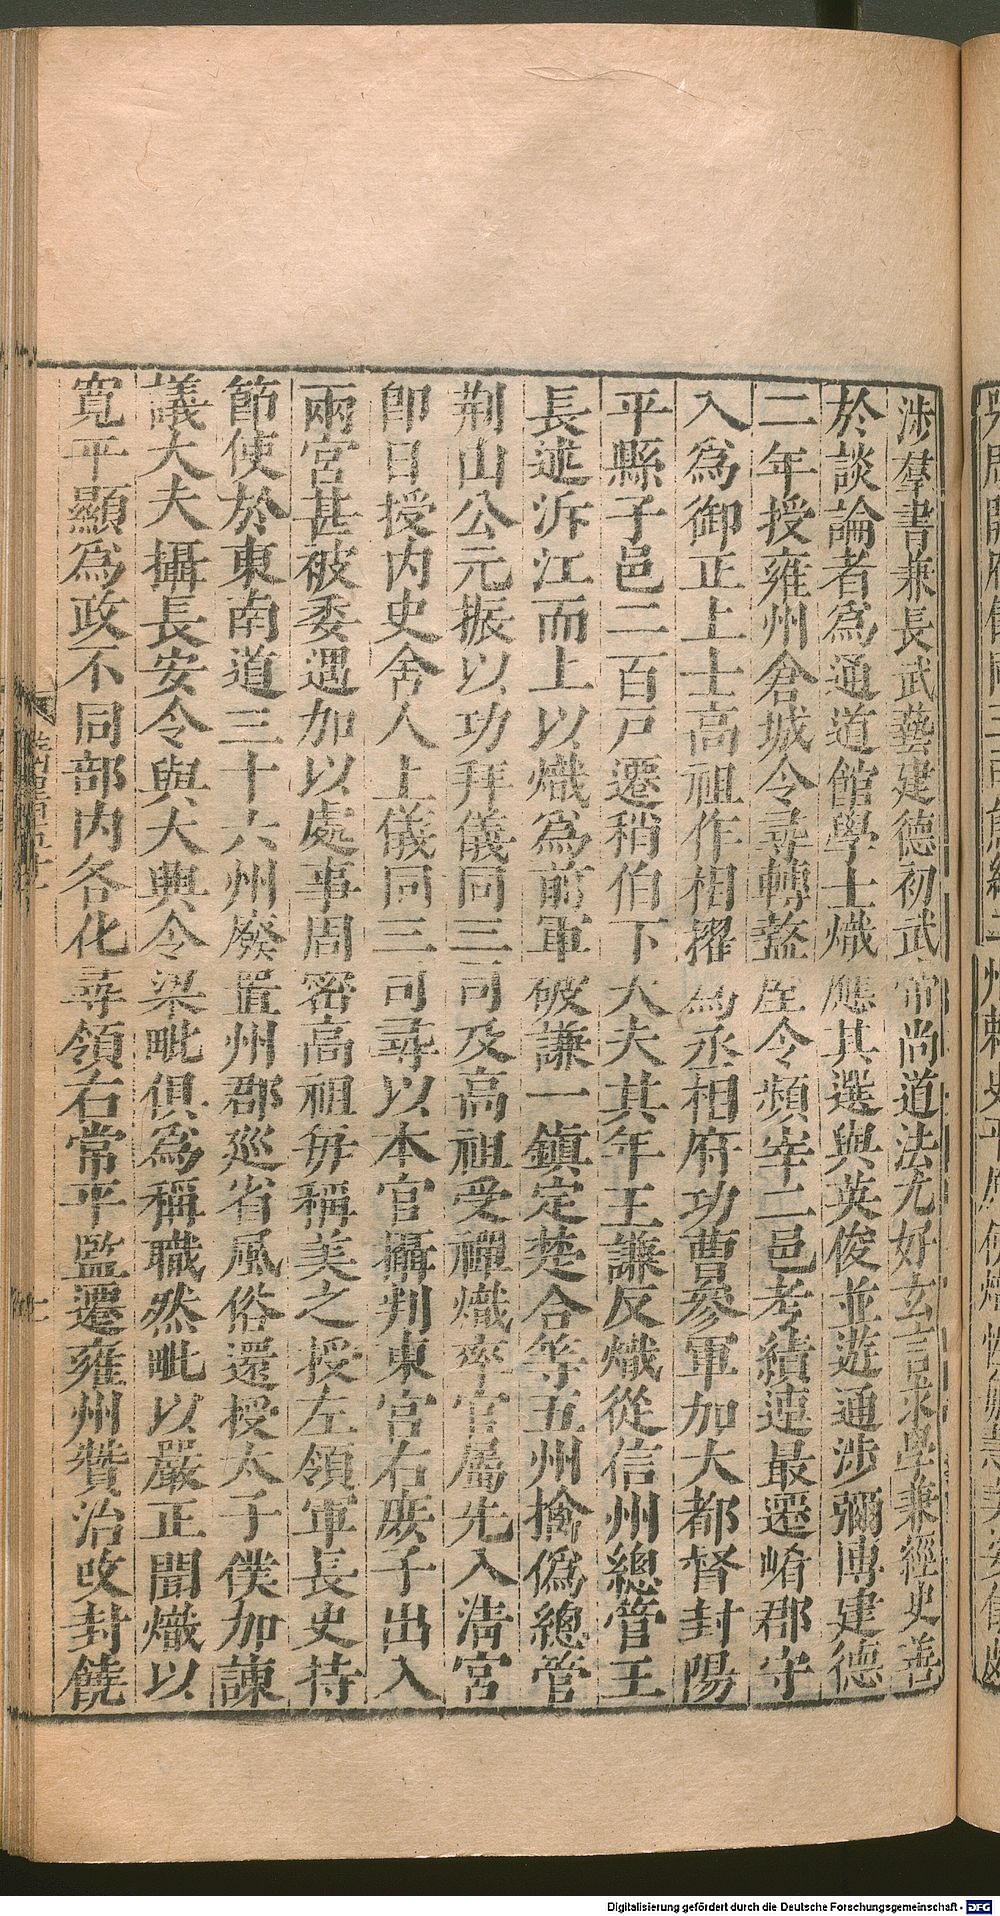 涉羣書兼長武藝建德初武帝尚道法尤好玄言求學兼經史善
於談論者爲通道館學士熾應其選與英俊並遊通涉彌博建德
二年授雍州倉城令尋轉盩厔令頻宰二邑考績連最遷崤郡守
入爲御正上士高祖作相擢爲丞相府功曹參軍加大都督封陽
平縣子邑二百戸遷稍伯下大夫其年王謙反熾從信州總管王
長述泝江而上以熾爲前軍破謙一鎮定楚合等五州擒僞總管
荆山公元振以功拜儀同三司及高祖受禪熾率官屬先入清宮
即日授内史舍人上儀同三司尋以本官攝判東宮右庶子出入
兩宮甚被委遇加以處事周密高祖每稱美之授左領軍長史持
節使於東南道三十六州廢置州郡巡省風俗還授太子僕加諫
議大夫攝長安令與大興令梁毗俱爲稱職然毗以嚴正聞熾以
寬平顯爲政不同部内各化尋領右常平監遷雍州贊治改封饒
Digitalisierung gefördert durch die Deutsche Forschungsgemeinschaft - DFG